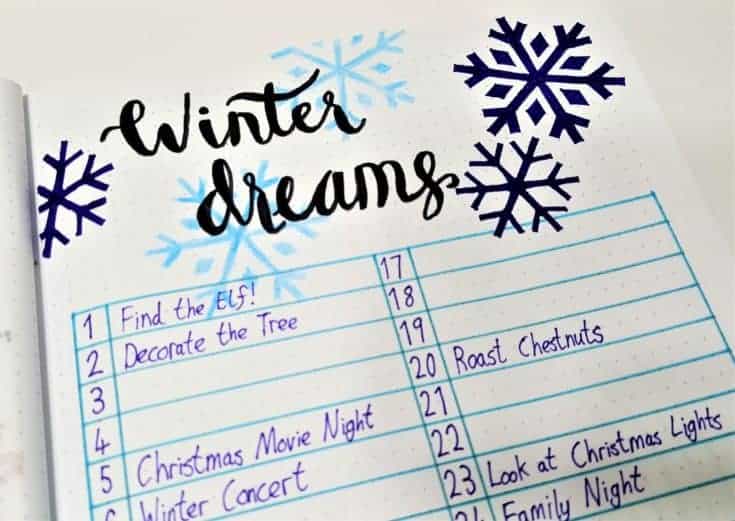 Winter
dreams
1 Find the Elf!
2 Decorate the Tree
3
4
5 Christmas Movie Night
6 Winter Concert
17
18
19
20 Roast Chestnuts
21
22
23 Look at Christmas Lights
24 Family Night